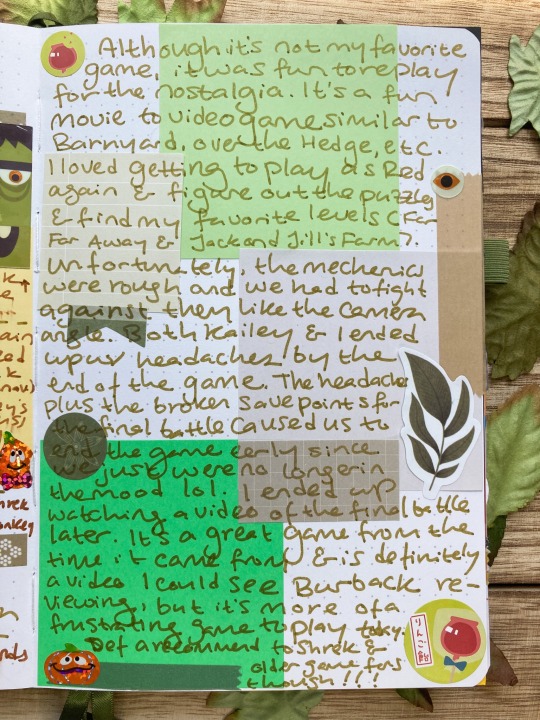 Although it's not my favorite
game, it was fun to replay
for the nostalgia. It's a fun
movie to video game similar to
Barnyard, over the Hedge, etc.
I loved getting to play as Red
again & figure out the puzzles
& find my favorite levels (Far
Far Away & Jack and Jill's Farm).
Unfortunately, the mechanics
were rough and we had to fight
against them like the camera
angle. Both Kailey & I ended
up w/ headaches by the
end of the game. The headache
plus the broken save points for
the final battle caused us to
end the game early since
we just were no longer in
the mood lol. I ended up
watching a video of the final battle
later. It's a great game from the
time it came from & is definitely
a video I could see Burback re-
viewing, but it's more of a
frustrating game to play today.
Def a recommend to Shrek &
older game fans
though!!!
りんご飴